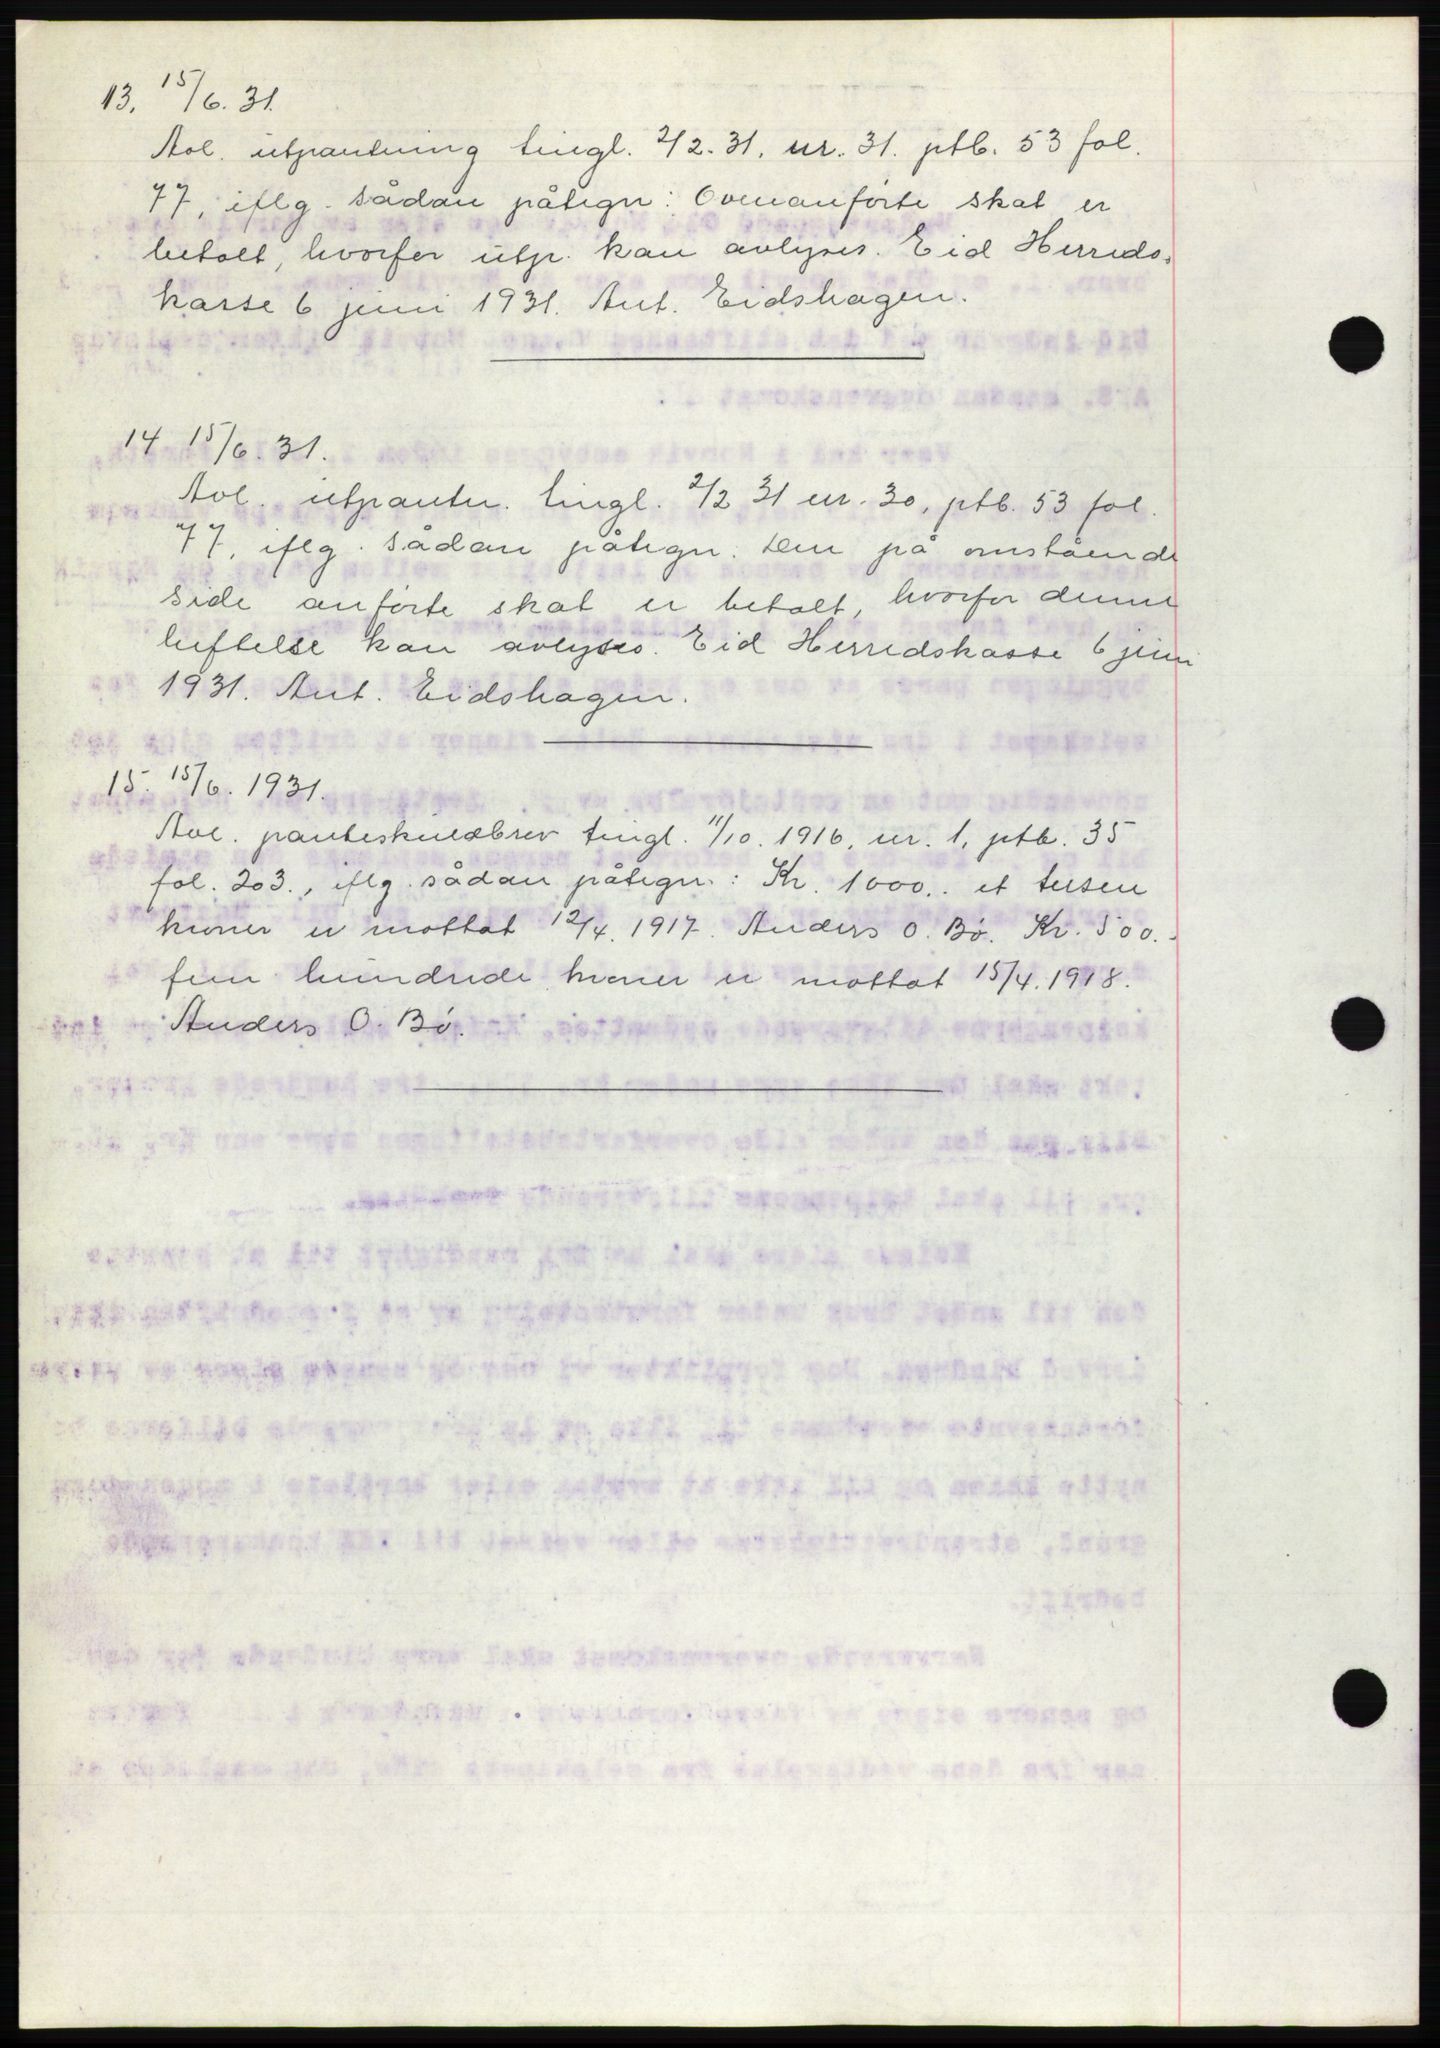 13. 15/6. 31.
Avl. utpantning tingl. 2/2. 31. nr. 31. ptb. 53 fol.
77, iflg. sådan påtegn: Ovenanførte skat er
betalt, hvorfor utp. kan avlyses. Eid Herreds-
kasse 6 juni 1931. Ant. Eidshagen.
14 15/6. 31.
Avl. utpantn. tingl. 2/2 31 nr. 30, ptb. 53 fol.
77, iflg. sådan påtegn: Den på omstående
side anførte skat er betalt, hvorfor denne
heftelse kan avlyses. Eid Herredskasse 6 juni
1931. Ant. Eidshagen.
15. 15/6. 1931.
Avl. panteskuldbrev tingl. 11/10. 1916, nr. 1, ptb. 35
fol. 203., iflg. sådan påtegn: Kr. 1000.. et tusen
kroner er mottat 12/4. 1917. Anders O. Bø. Kr. 500.-
fem hundrede kroner er mottat 15/4. 1918.
Anders O. Bø.